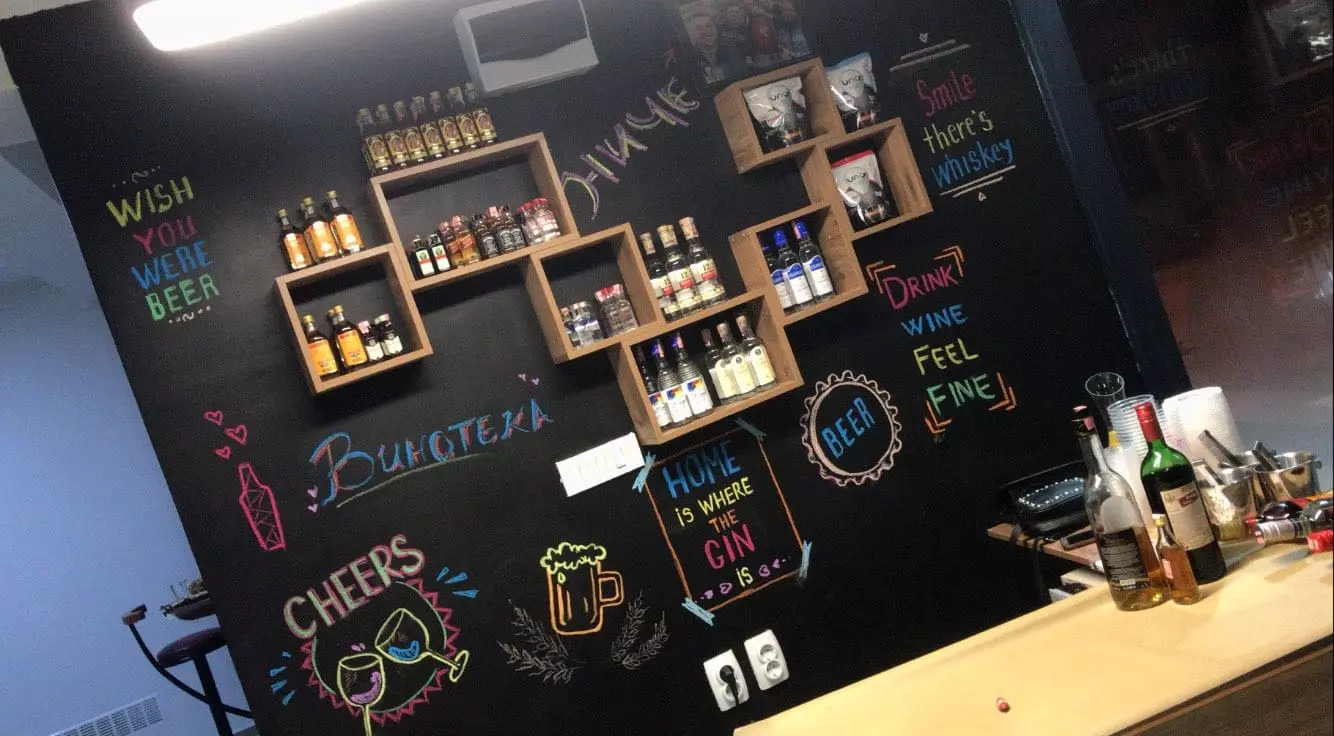 WISH
YOU
WERE
BEER
Smile
there's
whiskey
DRINK
WINE
FEEL
FINE
BEER
Винотека
HOME
IS WHERE
THE
GIN
IS
CHEERS